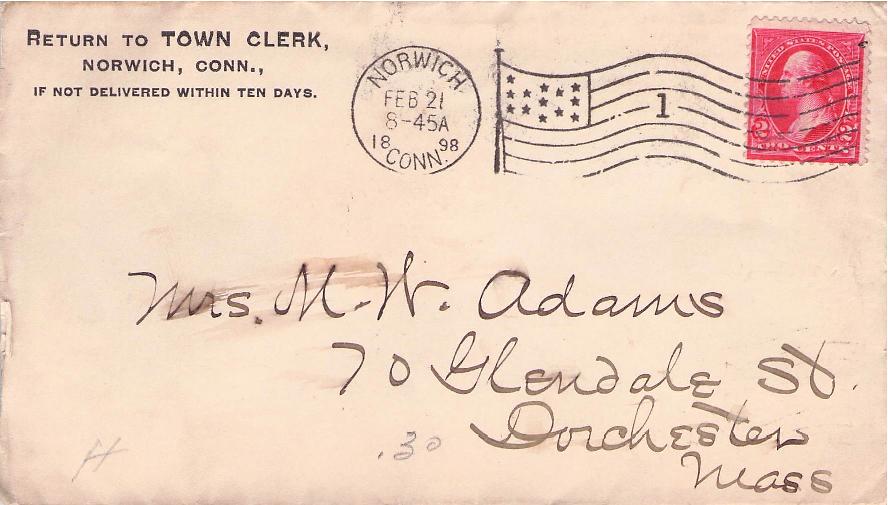 RETURN TO TOWN CLERK,
NORWICH, CONN.,
IF NOT DELIVERED WITHIN TEN DAYS.
NORWICH
FEB 21
8-45A
18 98
CONN.
1
UNITED STATES POSTAGE
2 2
TWO CENTS
Mrs. M. W. Adams
70 Glendale St.
Dorchester
Mass
H
.30